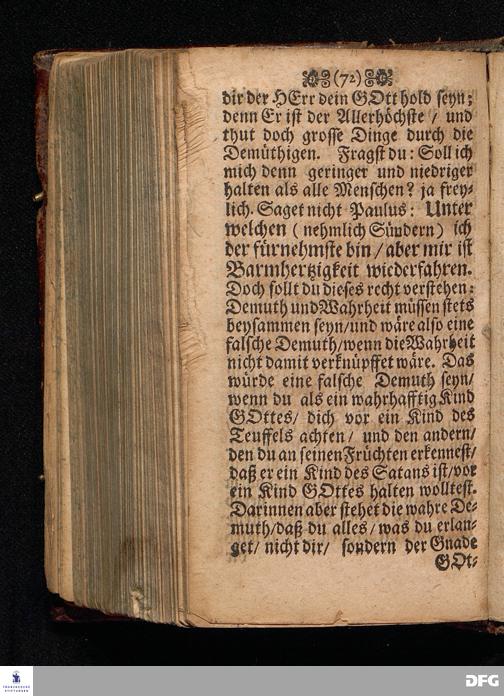 (72)
dir der HErr dein GOtt hold seyn;
denn Er ist der Allerhöchste / und
thut doch grosse Dinge durch die
Demüthigen. Fragst du: Soll ich
mich denn geringer und niedriger
halten als alle Menschen? ja frey-
lich. Saget nicht Paulus: Unter
welchen ( nehmlich Sündern) ich
der fürnehmste bin / aber mir ist
Barmhertzigkeit wiederfahren.
Doch sollt du dieses recht verstehen:
Demuth und Wahrheit müssen stets
beysammen seyn/und wäre also eine
falsche Demuth/wenn die Wahrheit
nicht damit verknüpffet wäre. Das
würde eine falsche Demuth seyn/
wenn du als ein wahrhafftig Kind
GOttes/ dich vor ein Kind des
Teuffels achten/ und den andern/
den du an seinen Früchten erkennest/
daß er ein Kind des Satans ist/vor
ein Kind GOttes halten wolltest.
Darinnen aber stehet die wahre De-
muth/daß du alles/was du erlan-
get/ nicht dir/ sondern der Gnade
GOt-
FRANCKESCHE
STIFTUNGEN
DFG